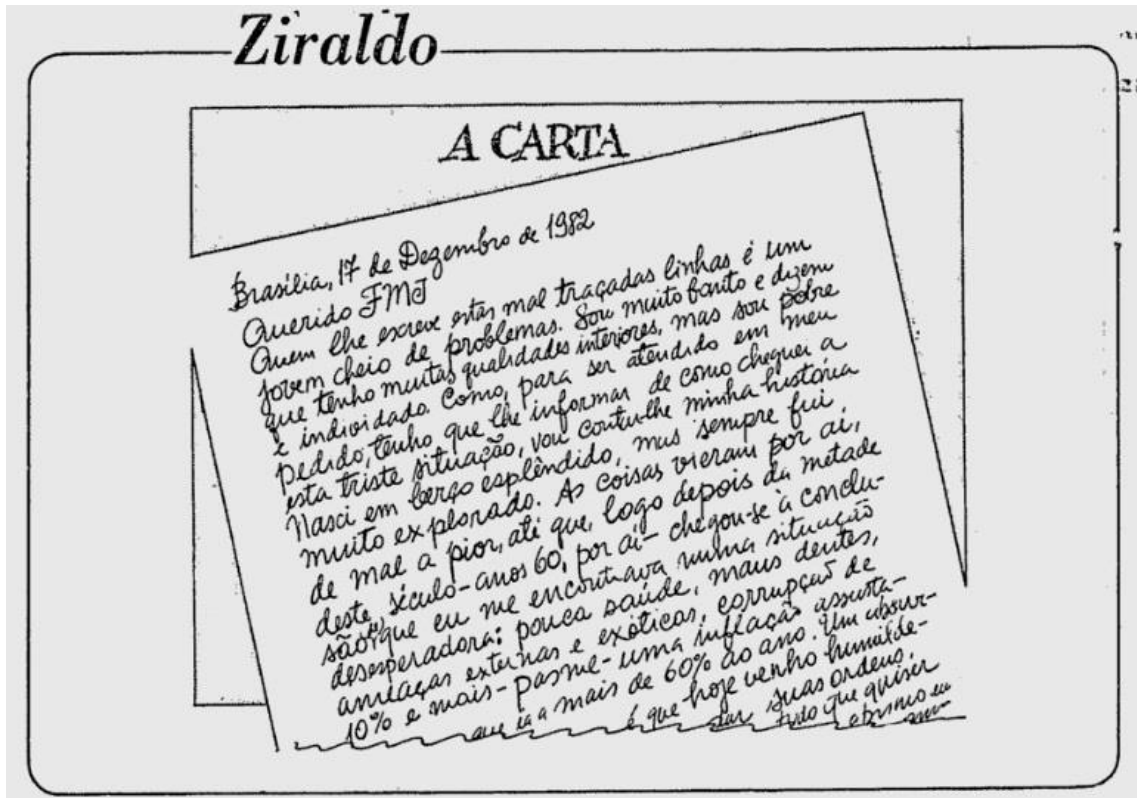 Ziraldo
A CARTA
Brasília, 17 de Dezembro de 1982
Querido FMI
Quem lhe escreve estas mal traçadas linhas é um
jovem cheio de problemas. Sou muito bonito e dizem
que tenho muitas qualidades interiores, mas sou pobre
e individado. Como, para ser atendido em meu
pedido, tenho que lhe informar de como cheguei a
esta triste situação, vou contar-lhe minha história
Nasci em berço esplêndido, mas sempre fui
muito explorado. As coisas vieram por aí,
de mal a pior, até que, logo depois da metade
deste século-anos 60, por aí- chegou-se à conclu-
são que eu me encontrava numa situação
desesperadora: pouca saúde, maus dentes,
ameaças externas e exóticas, corrupção de
10% e mais-pasme-uma inflação assusta-
que ia a mais de 60% ao ano. Um
é que hoje venho humilde-
suas ordens,
tudo que quiser